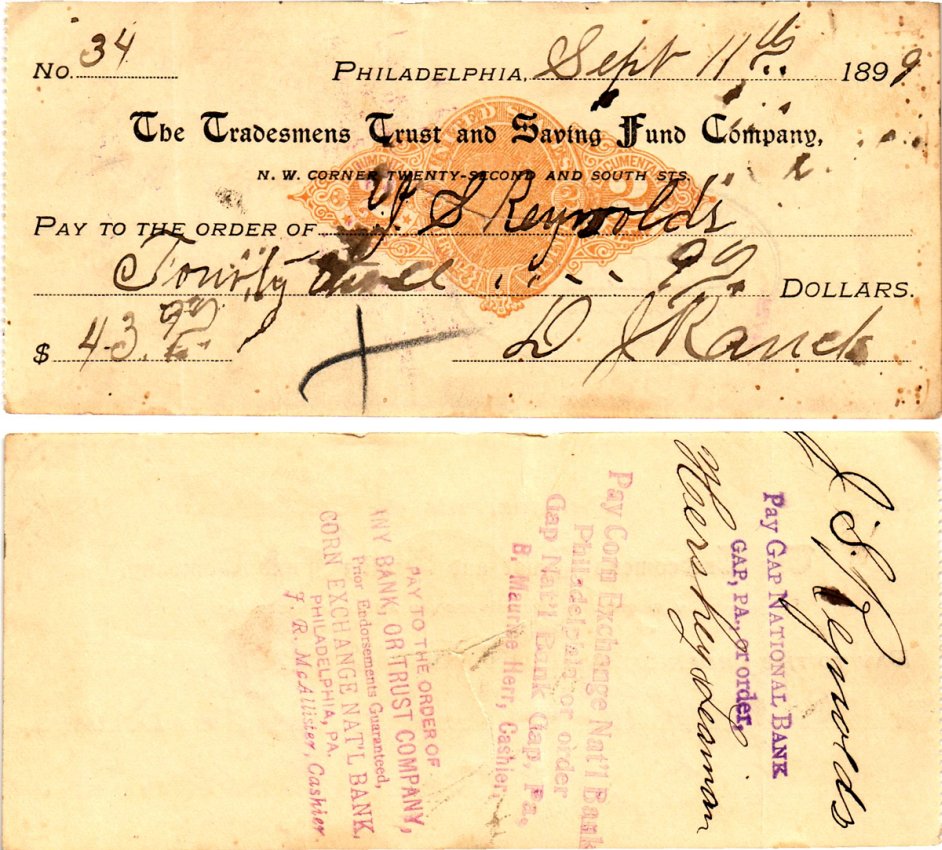 No. 34
PHILADELPHIA, Sept 11th 1899
The Tradesmens Trust and Saving Fund Company,
N. W. CORNER TWENTY-SECOND AND SOUTH STS.
PAY TO THE ORDER OF J S Reynolds
Fourty three 99 DOLLARS.
$ 43.99
D J Ranck
J. S. Reynolds
Pay GAP NATIONAL BANK
GAP, PA., or order,
Hershey & Leaman
Pay Corn Exchange Nat'l Bank
Philadelphia or order
Gap Nat'l Bank Gap, Pa.
B. Maurice Herr, Cashier.
PAY TO THE ORDER OF
ANY BANK, OR TRUST COMPANY,
Prior Endorsements Guaranteed,
CORN EXCHANGE NAT'L BANK,
PHILADELPHIA, PA.
J. R. McAllister, Cashier